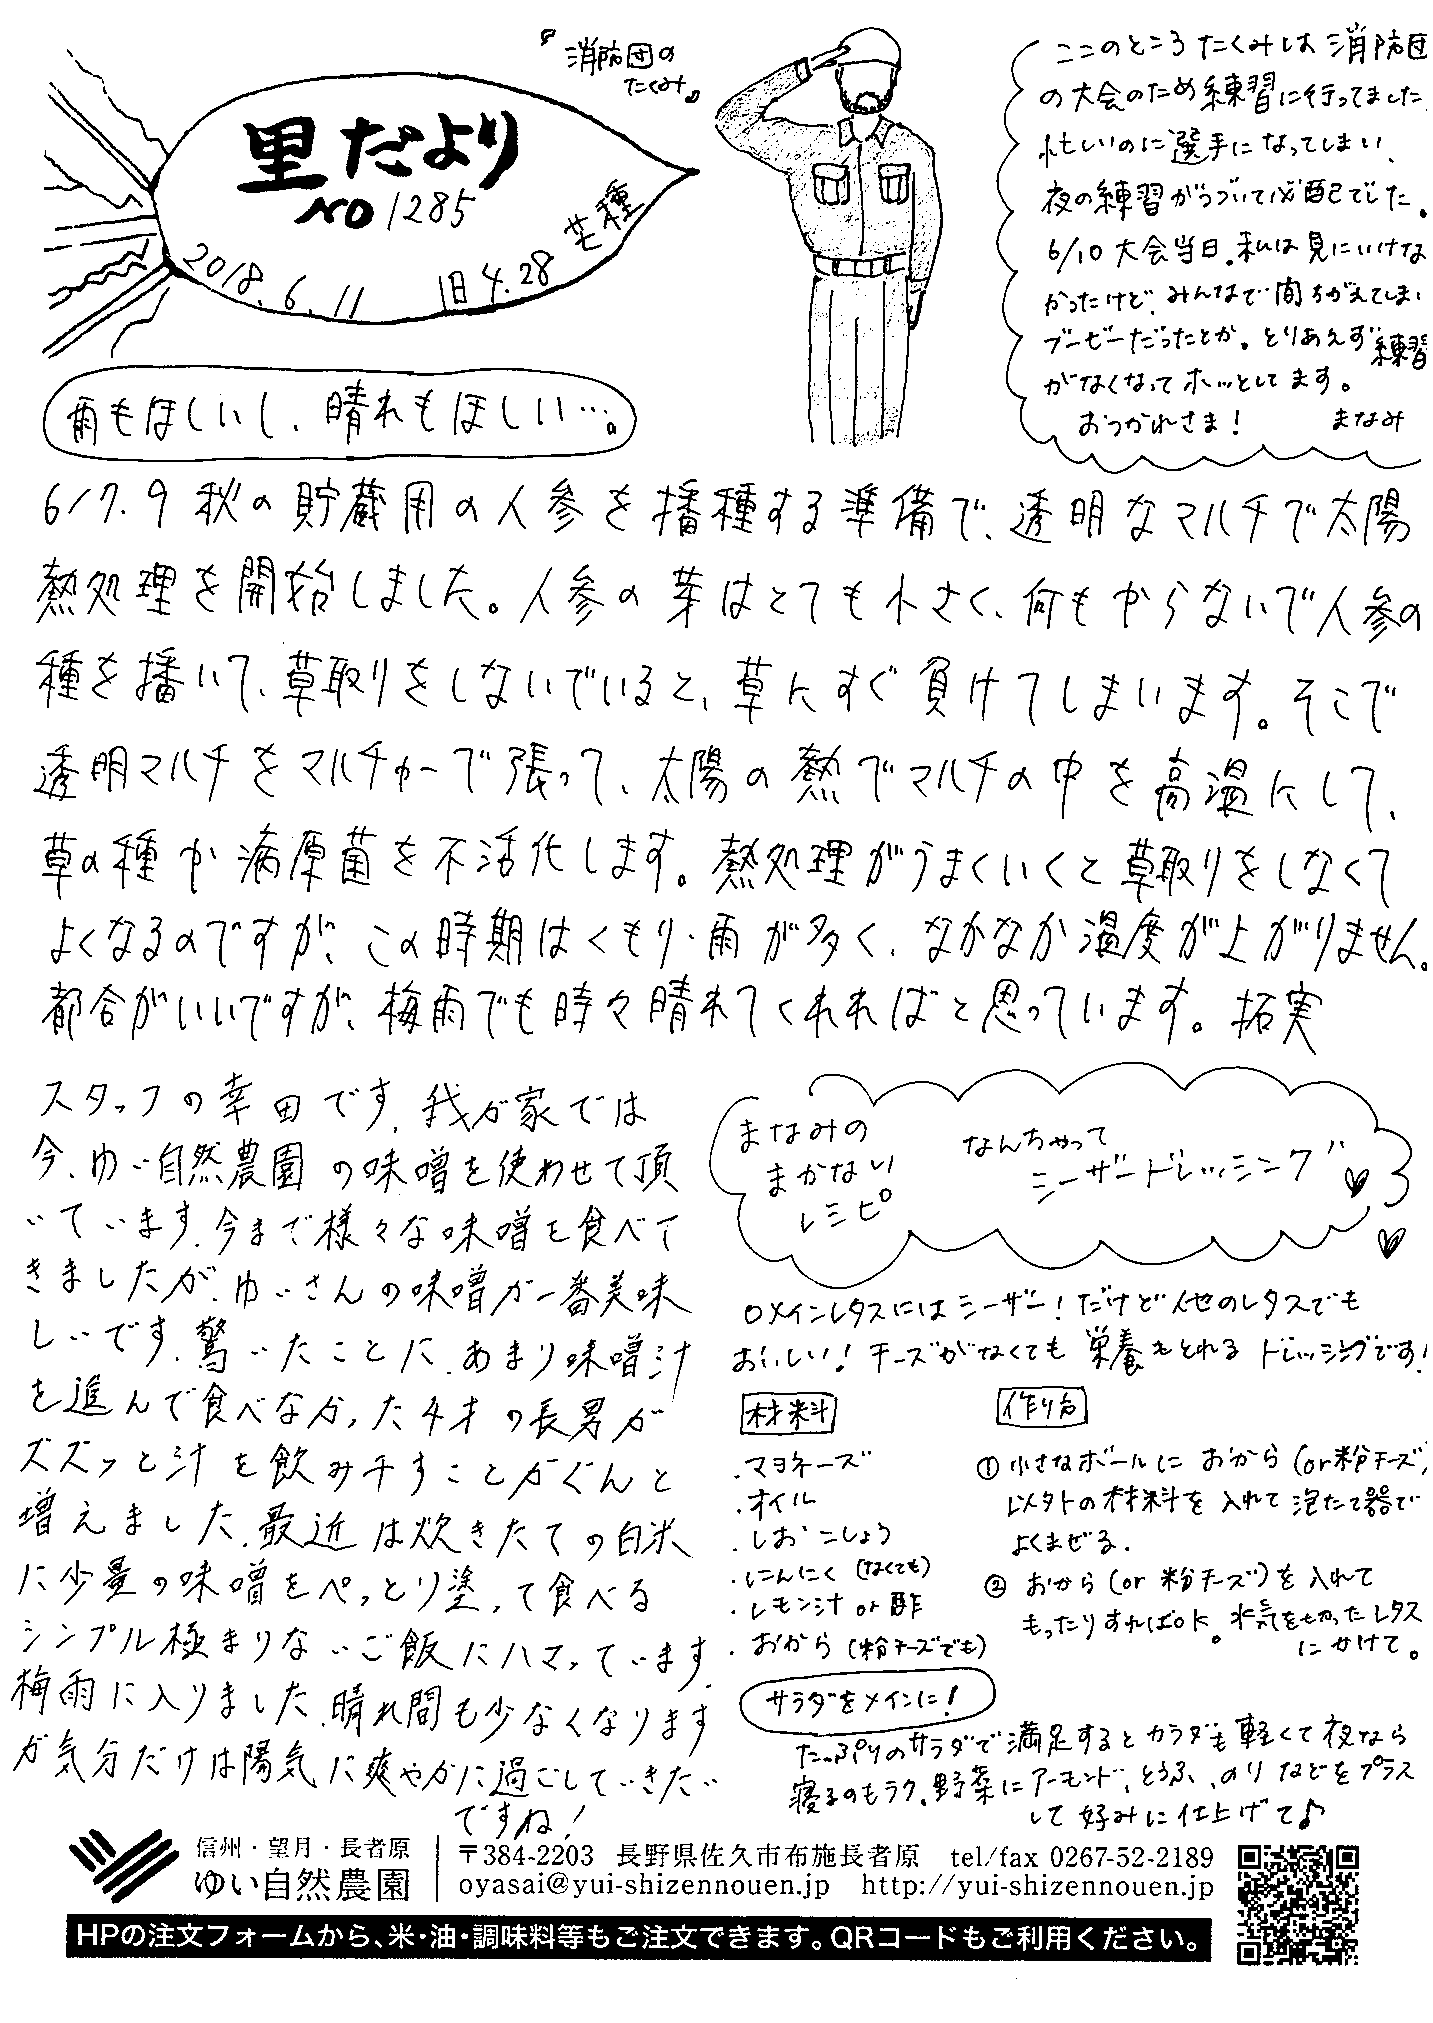 里だより
NO 1285
2018.6.11 旧4.28 芒種
『消防団の
たくみ』
ここのところ たくみは 消防団
の大会のため練習に行ってました。
忙しいのに選手になってしまい、
夜の練習がつづいて心配でした。
6/10 大会当日。私は見にいけな
かったけど、みんなで間ちがえてしまい
ブービーだったとか。とりあえず練習
がなくなってホッとしてます。
おつかれさま! まなみ
雨もほしいし、晴れもほしい…。
6/7.9 秋の貯蔵用の人参を播種する準備で、透明なマルチで太陽
熱処理を開始しました。人参の芽はとても小さく、何もやらないで人参の
種を播いて、草取りをしないでいると、草にすぐ負けてしまいます。そこで
透明マルチをマルチャーで張って、太陽の熱でマルチの中を高温にして、
草の種や病原菌を不活化します。熱処理がうまくいくと草取りをしなくて
よくなるのですが、この時期はくもり・雨が多く、なかなか温度が上がりません。
都合がいいですが、梅雨でも時々晴れてくれればと思っています。拓実
スタッフの幸田です。我が家では
今、ゆい自然農園の味噌を使わせて頂
いています。今まで様々な味噌を食べて
きましたが、ゆいさんの味噌が一番美味
しいです。驚いたことに、あまり味噌汁
を進んで食べなかった4才の長男が
ズズッと汁を飲み干すことがぐんと
増えました。最近は炊きたての白米
に少量の味噌をぺったり塗って食べる
シンプル極まりないご飯にハマっています。
梅雨に入りました。晴れ間も少なくなります
が気分だけは陽気に爽やかに過ごしていきたい
ですね!
まなみの
まかない
レシピ
なんちゃって
シーザードレッシング
○メインレタスにはシーザー!だけど他のレタスでも
おいしい! チーズがなくても栄養もとれるドレッシングです!
材料
・マヨネーズ
・オイル
・しお こしょう
・にんにく (なくても)
・レモン汁 or 酢
・おから (粉チーズでも)
作り方
① 小さなボールに おから (or粉チーズ)
以外の材料を入れて泡だて器で
よくまぜる。
② おから (or 粉チーズ) を入れて
もったりすればOK。水気をもったレタス
にかけて。
サラダをメインに!
たっぷりのサラダで満足するとカラダも軽くて夜なら
寝るのもラク。野菜にアーモンド、とうふ、のりなどをプラス
して好みに仕上げて♪
信州・望月・長者原
ゆい自然農園
〒384-2203 長野県佐久市布施長者原 tel/fax 0267-52-2189
oyasai@yui-shizennouen.jp http://yui-shizennouen.jp
HPの注文フォームから、米・油・調味料等もご注文できます。QRコードもご利用ください。